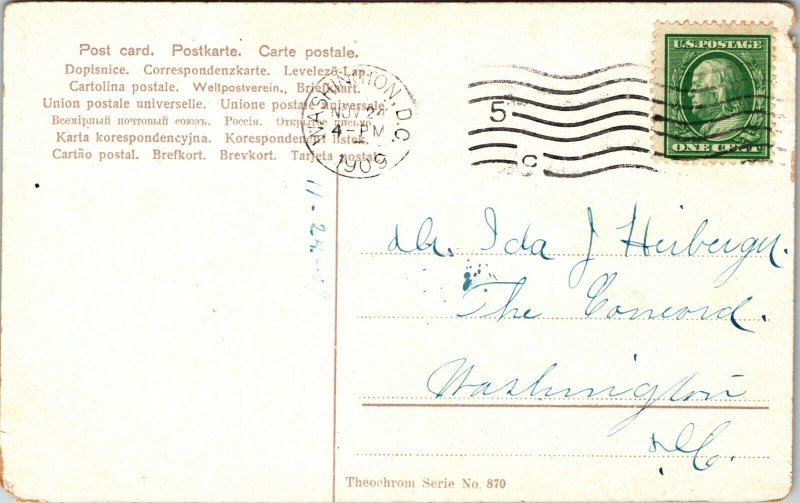 Post card. Postkarte. Carte postale.
Dopisnice. Correspondenzkarte. Levelező-Lap.
Cartolina postale. Weltpostverein. Briefkaart.
Union postale universelle. Unione postale universale.
Всемірный почтовый союзъ. Россія. Открытое письмо.
Karta korespondencyjna. Korespondenční lístek.
Cartão postal. Brefkort. Brevkort. Tarjeta postal.
WASHINGTON, D.C.
NOV 24
4-PM
1909
5
C
U.S. POSTAGE
ONE CENT
11-24-09
Dr. Ida J Heiberger.
The Concord.
Washington
D.C.
Theochrom Serie No. 870